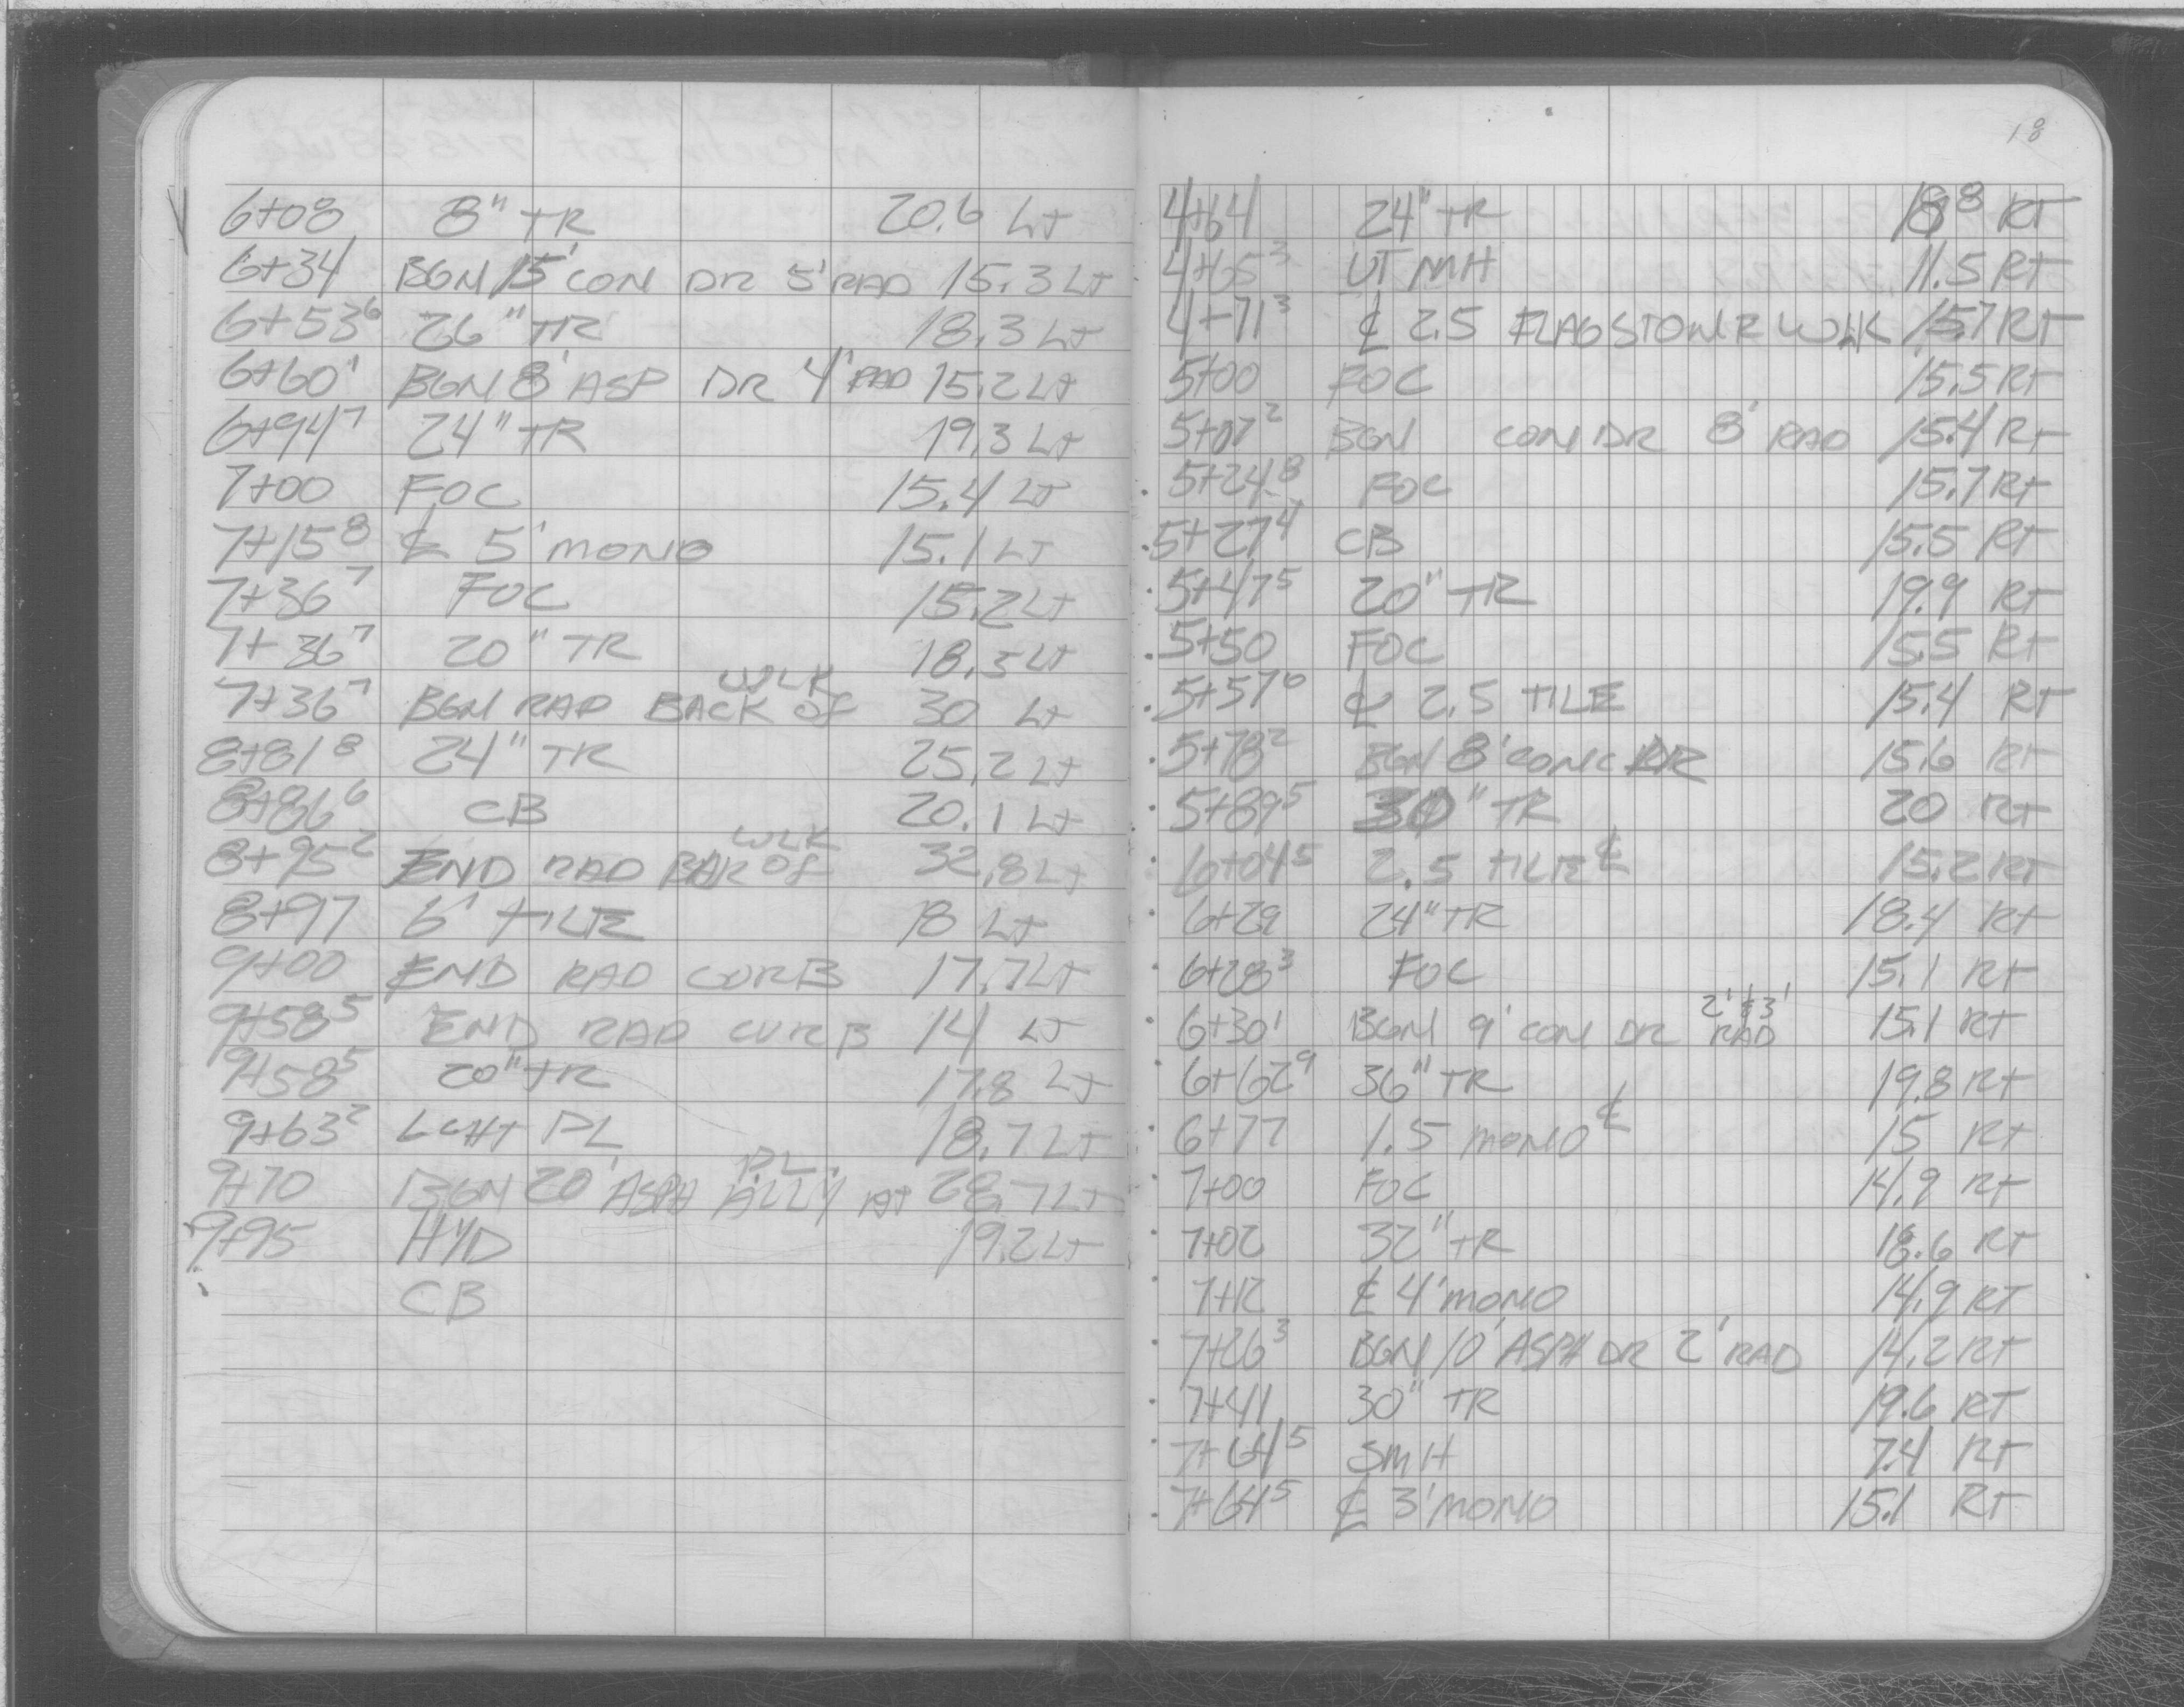 6+08 8" TR 20.6 Lt
6+34 BGN 15' CON DR 5' RAD 15.3 Lt
6+53⁶ 26" TR 18.3 Lt
6+60¹ BGN 8' ASP DR 4' RAD 15.2 Lt
6+94⁷ 24" TR 19.3 Lt
7+00 FOC 15.4 Lt
7+15⁸ ℄ 5' MONO 15.1 Lt
7+36⁷ FOC 15.2 Lt
7+36⁷ 20" TR 18.5 Lt
7+36⁷ BGN RAD BACK OF WLK 30 Lt
8+81⁸ 24" TR 25.2 Lt
8+86⁶ CB 20.1 Lt
8+95² END RAD BAK OF WLK 32.8 Lt
8+97 6' TILE 18 Lt
9+00 END RAD CURB 17.7 Lt
9+58⁵ END RAD CURB 14 Lt
9+58⁵ 20" TR 17.8 Lt
9+63² LGHT PL 18.7 Lt
9+70 BGN 20' ASPH ALLY PL. At 28.7 Lt
9+95 HYD 19.2 Lt
CB
18
4+64 24" TR 18⁸ Rt
4+65³ UT MH 11.5 Rt
4+71³ ℄ 2.5 FLAGSTONE WLK 15.7 Rt
5+00 FOC 15.5 Rt
5+07² BGN CON DR 8' RAD 15.4 Rt
5+24⁸ FOC 15.7 Rt
5+27⁴ CB 15.5 Rt
5+47⁵ 20" TR 19.9 Rt
5+50 FOC 15.5 Rt
5+57⁶ ℄ 2.5 TILE 15.4 Rt
5+78² BGN 8' CONC DR 15.6 Rt
5+89⁵ 30" TR 20 Rt
6+04⁵ 2.5 TILE ℄ 15.2 Rt
6+29 24" TR 18.4 Rt
6+28³ FOC 15.1 Rt
6+30¹ BGN 9' CON DR 2' & 3' RAD 15.1 Rt
6+62⁹ 36" TR 19.8 Rt
6+77 1.5 MONO ℄ 15 Rt
7+00 FOC 14.9 Rt
7+02 32" TR 18.6 Rt
7+12 ℄ 4' MONO 14.9 Rt
7+26³ BGN 10' ASPH DR 2' RAD 14.2 Rt
7+41 30" TR 19.6 Rt
7+64⁵ SMH 7.4 Rt
7+64⁵ ℄ 3' MONO 15.1 Rt